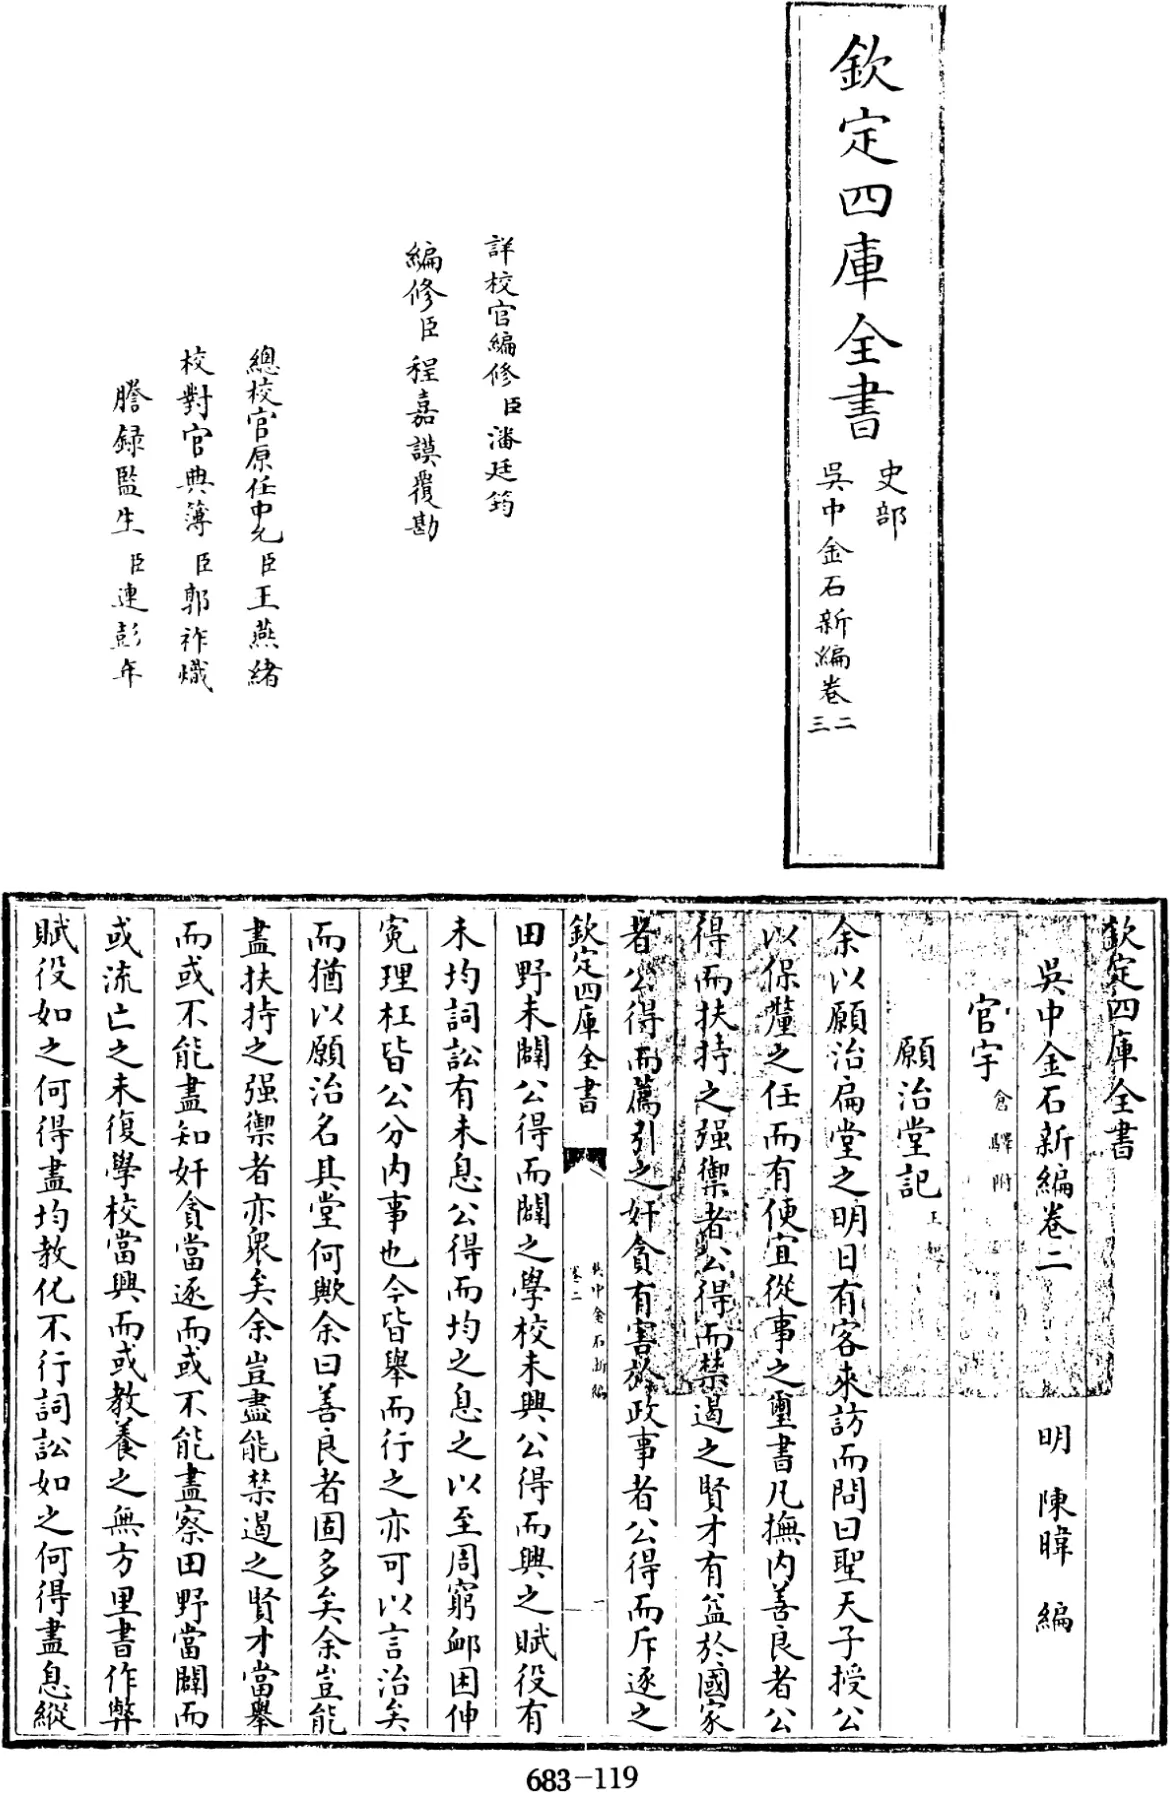 欽定四庫全書
史部
吳中金石新編卷二
三
詳校官編修臣潘廷筠
編修臣程嘉謨覆勘
總校官原任中允臣王燕緒
校對官典簿臣郭祚熾
謄錄監生臣連彭年
欽定四庫全書
吳中金石新編卷二 明 陳暐 編
官宇 倉驛附
願治堂記 王
余以願治扁堂之明日有客來訪而問曰聖天子授公
以保釐之任而有便宜從事之璽書凡撫內善良者公
得而扶持之强禦者公得而禁遏之賢才有益於國家
者公得而薦引之奸貪有害於政事者公得而斥逐之
欽定四庫全書
吳中金石新編
卷二
一
田野未闢公得而闢之學校未興公得而興之賦役有
未均詞訟有未息公得而均之息之以至周窮卹困伸
寃理枉皆公分內事也今皆舉而行之亦可以言治矣
而猶以願治名其堂何歟余曰善良者固多矣余豈能
盡扶持之强禦者亦衆矣余豈盡能禁遏之賢才當舉
而或不能盡知奸貪當逐而或不能盡察田野當闢而
或流亡之未復學校當興而或教養之無方里書作弊
賦役如之何得盡均教化不行詞訟如之何得盡息縱
683-119